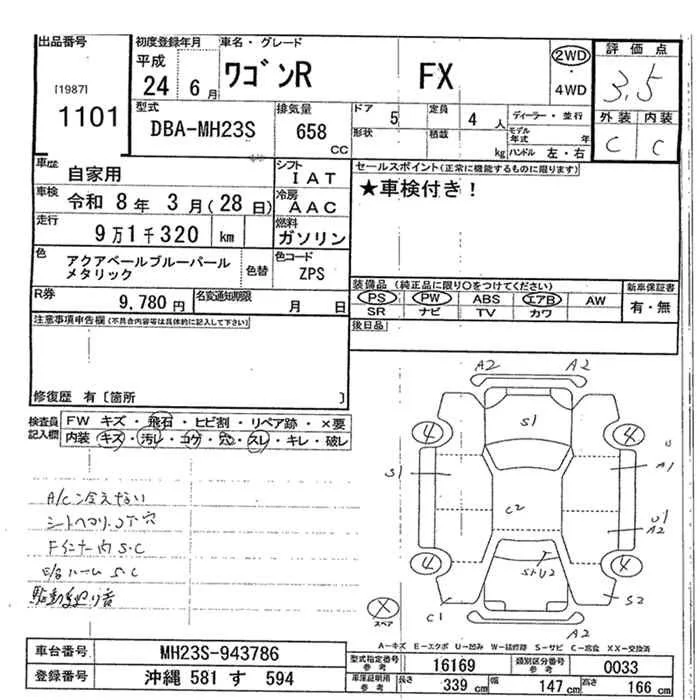 出品番号
[1987]
1101
初度登録年月
平成
24 6月
車名・グレード
ワゴンR FX
2WD
・
4WD
評価点
3.5
型式
DBA-MH23S
排気量
658 cc
ドア 5
定員 4人
形状
積載 kg
ディーラー・並行
モデル年式 年
ハンドル 左・右
外装 内装
C C
車歴 自家用
シフト IAT
車検 令和 8年 3月(28日)
冷房 AAC
走行 9万1千320 km
燃料 ガソリン
セールスポイント(正常に機能するものに限ります)
★車検付き!
色 アクアベールブルーパールメタリック
色替
色コード ZPS
R券 9,780円
名変通知期限 月 日
装備品 (純正品に限り〇をつけてください)
PS PW ABS エアB AW
SR ナビ TV カワ
新車保証書
有・無
後日品
注意事項申告欄(不具合内容等は具体的に記入して下さい)
修復歴 有[箇所 ]
検査員記入欄
FW キズ・飛石・ヒビ割・リペア跡・×要
内装・キズ・汚レ・コゲ・穴・スレ・キレ・破レ
A/C冷えない
Fインナー内S.C
E/Bルーム S.C
A2 A2
S1
4 4
S1 A1
C2
U1
A2
4 4
C1 S2
A2
×
スペア
A-キズ E-エクボ U-凹み W-補修跡 S-サビ C-腐食 XX-交換済
車台番号 MH23S-943786
登録番号 沖縄 581 す 594
型式指定番号 参考 16169
類別区分番号 参考 0033
車庫証明用 参考 長さ 339cm 幅 147cm 高さ 166cm